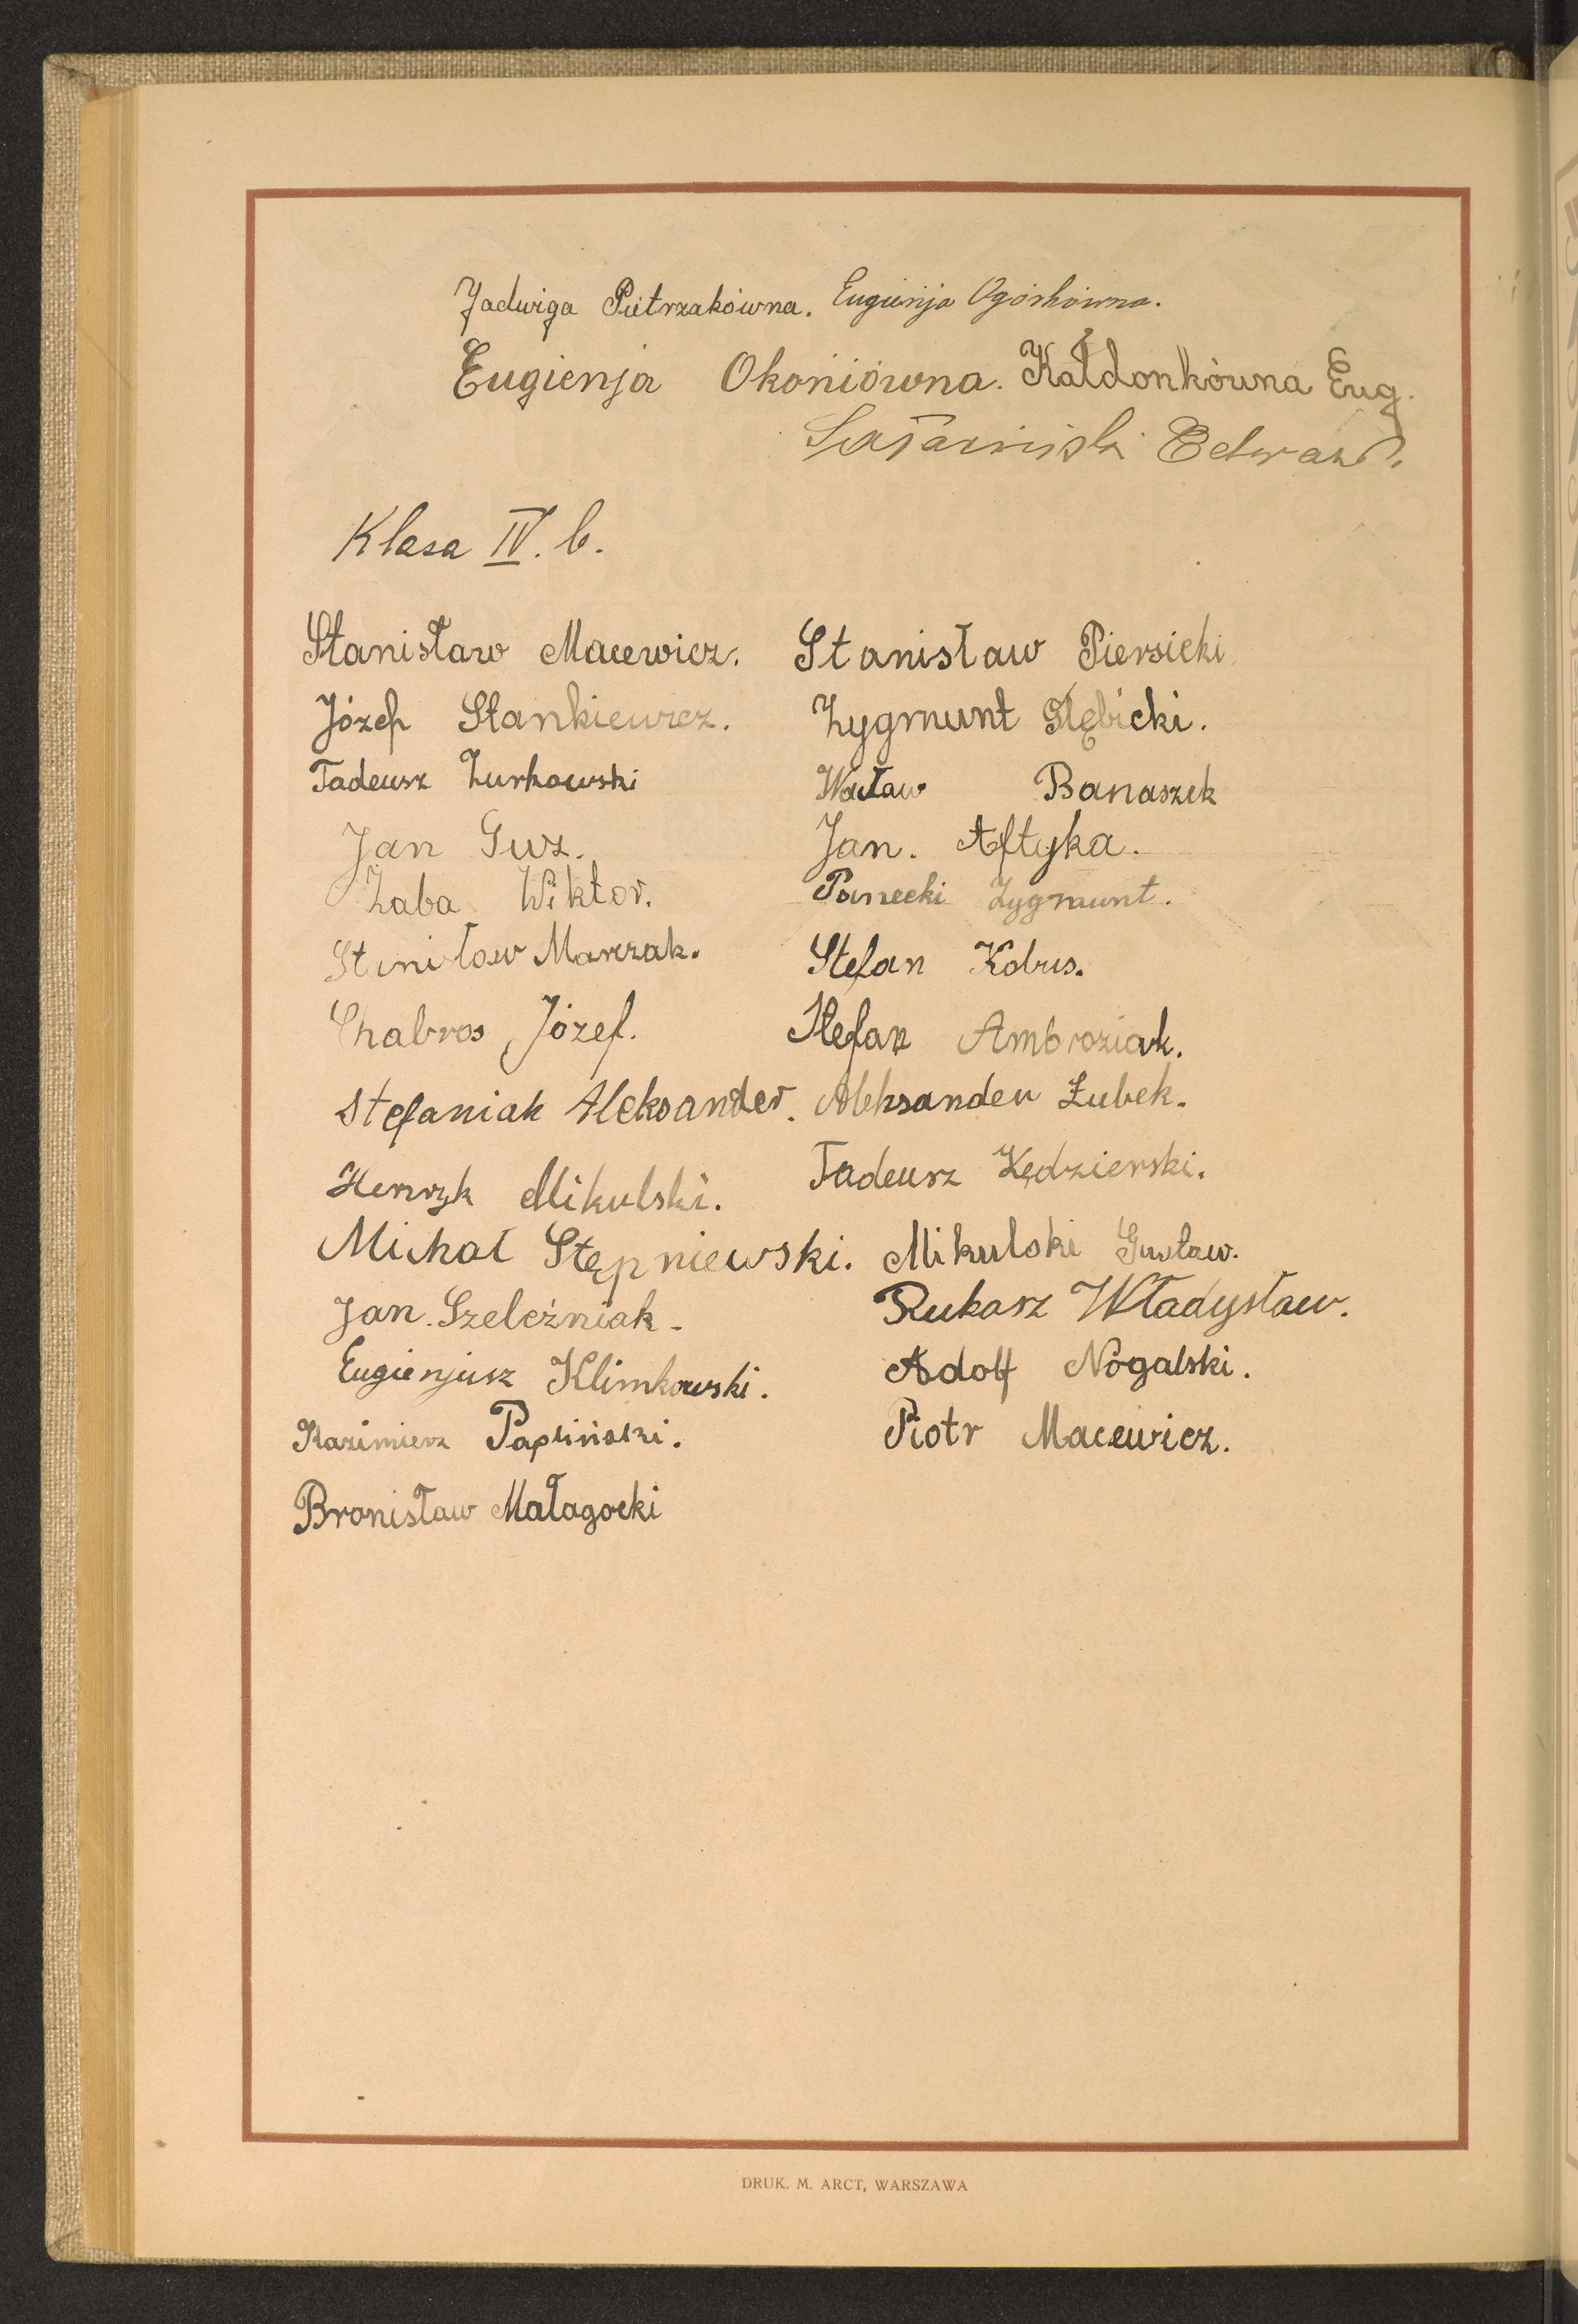 Jadwiga Pietrzakówna. Eugienja Ogórkówna.
Eugienja Okoniówna. Kałdonkówna Eug.
Edward.
Klasa IV. b.
Stanisław Macewicz. Stanisław Piersicki
Józef Stankiewicz. Zygmunt Głębicki.
Tadeusz Żurkowski Wacław Banaszek
Jan Guz. Jan. Aftyka.
Żaba Wiktor. Panecki Zygmunt.
Stanisław Marczak. Stefan Kobus.
Chabros Józef. Stefan Ambroziak.
Stefaniak Aleksander. Aleksander Łubek.
Henryk Mikulski. Tadeusz Kędzierski.
Michał Stępniewski. Mikulski Gustaw.
Jan. Szeleźniak. Rukasz Władysław.
Eugienjusz Klimkowski. Adolf Nogalski.
Kazimierz Papliński. Piotr Macewicz.
Bronisław Małagocki
DRUK. M. ARCT, WARSZAWA